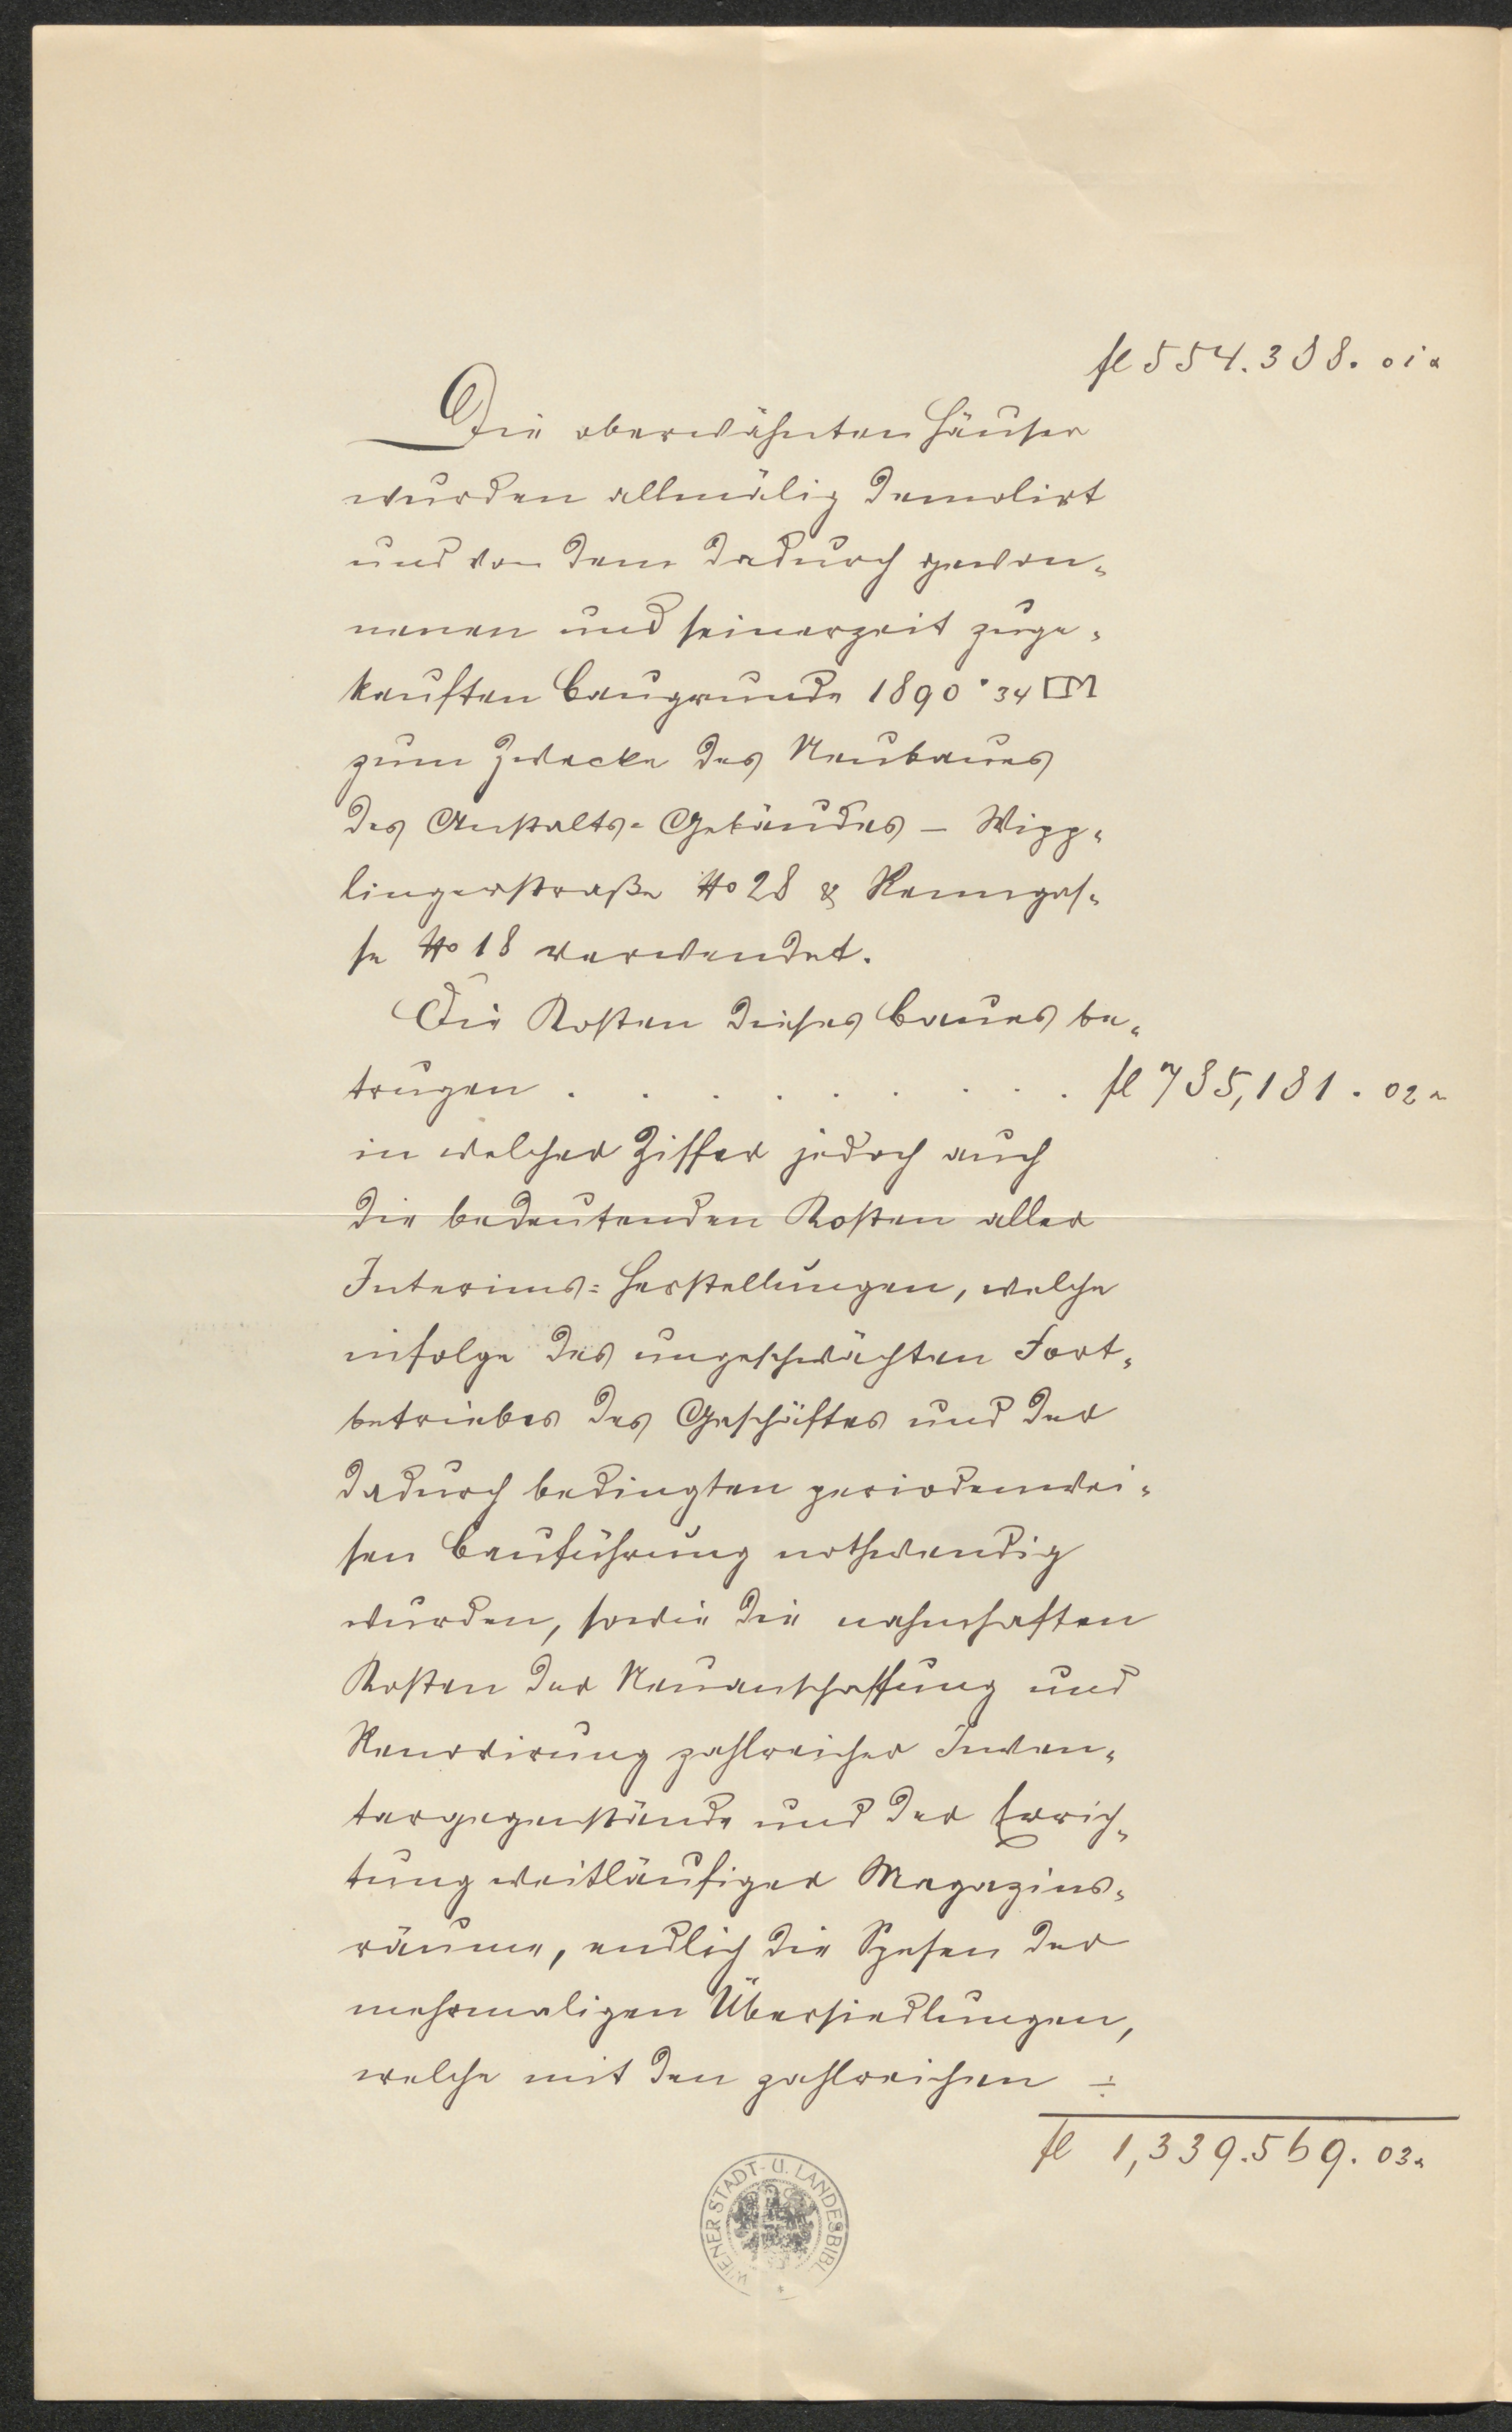 fl 554.388. 01 x
Die oberwähnten Häuser
wurden allmälig demolirt
und von dem dadurch gewon-
nenen und seinerzeit zuge-
kauften Baugrunde 1890·34 □M
zum Zwecke des Neubaues
des Anstalts-Gebäudes – Wipp-
lingerstraße No 28 & Renngas-
se No 18 verwendet.
Die Kosten dieses Baues be-
trugen . . . . . . . . fl 785,181. 02 x
in welcher Ziffer jedoch auch
die bedeutenden Kosten aller
Interims-Herstellungen, welche
infolge des ungeschwächten Fort-
betriebes des Geschäftes und der
dadurch bedingten periodenwei-
sen Bauführung nothwendig
wurden, sowie die nahmhaften
Kosten der Neuanschaffung und
Renovirung zahlreicher Inven-
targegenstände und der Errich-
tung weitläufiger Magazins-
räume, endlich die Spesen der
mehrmaligen Übersiedlungen,
welche mit den zahlreichen ÷
fl 1,339.569. 03 x
WIENER STADT- U. LANDESBIBL.